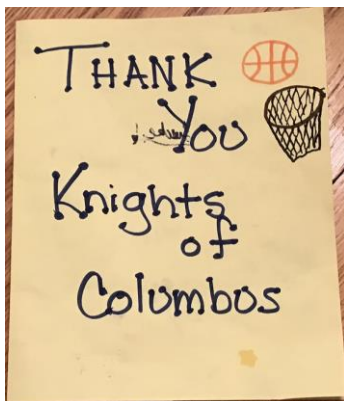 THANK
You
Knights
of
Columbus